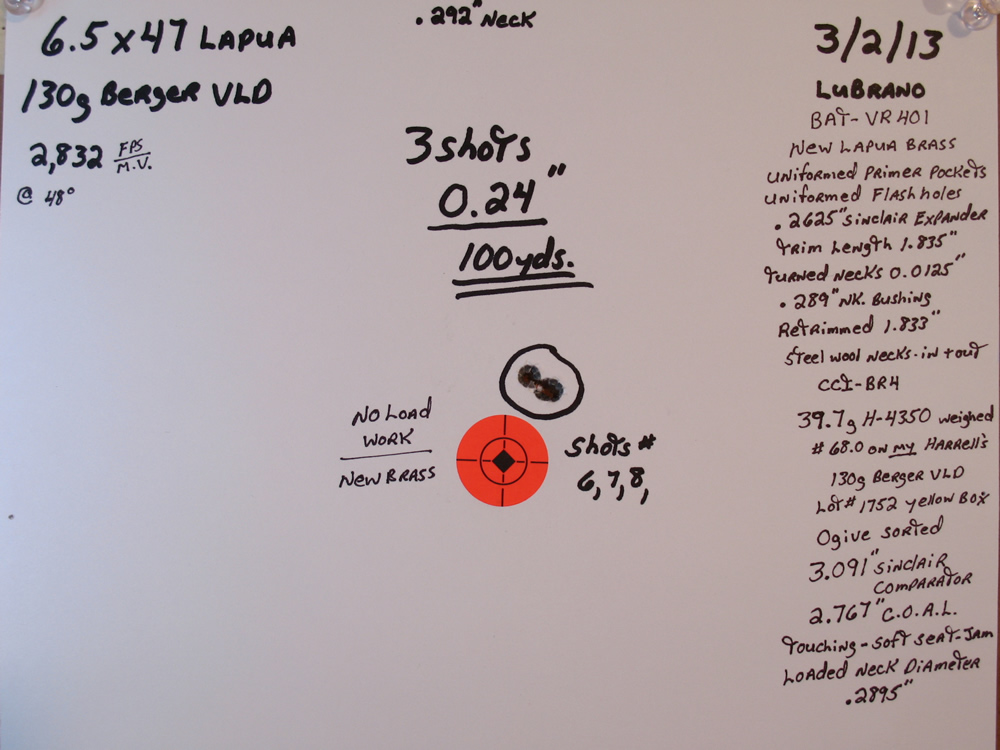 .292" Neck
6.5x47 LAPUA
130g Berger VLD
2,832 FPS/M.V.
@ 48°
3 shots
0.24"
100yds.
NO LOAD
WORK
NEW BRASS
Shots #
6, 7, 8,
3/2/13
LUBRANO
BAT-VR401
NEW LAPUA BRASS
UNIFORMED PRIMER POCKETS
UNIFORMED FLASHHOLES
.2625" SINCLAIR EXPANDER
TRIM LENGTH 1.835"
TURNED NECKS 0.0125"
.289" NK. BUSHING
RETRIMMED 1.833"
STEEL WOOL NECKS-IN + OUT
CCI-BR4
39.7g H-4350 weighed
# 68.0 ON MY HARRELL'S
130g Berger VLD
LOT# 1752 yellow Box
Ogive SORTED
3.091" SINCLAIR
COMPARATOR
2.767" C.O.A.L.
TOUCHING-SOFT SEAT-JAM
LOADED NECK DIAMETER
.2895"